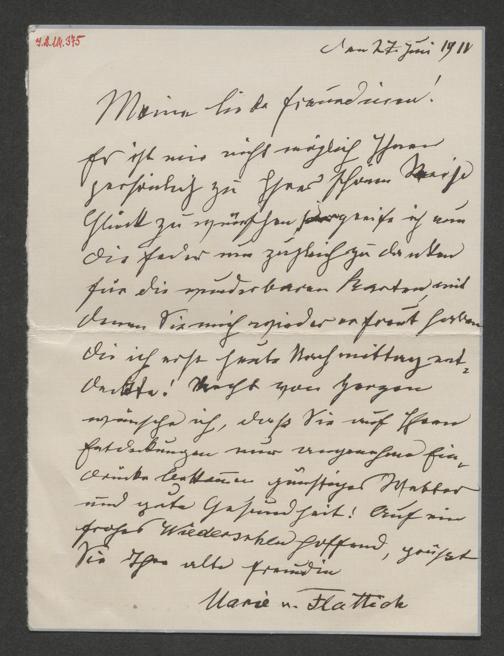 den 27. Juni 1911
Meine liebe Freundinen!
Es ist mir nicht möglich Ihnen
persönlich zu Ihrer schönen Reise
Glück zu wünschen greife ich nun
die Feder um zugleich zu danken
für die wunderbaren Karten, mit
denen Sie mich wieder erfreut haben
die ich erst heute Nachmittag ent-
deckte! Recht von Herzen
wünsche ich, daß Sie auf Ihren
Entdeckungen nur angenehme Ein-
drücke günstiges Wetter
und gute Gesundheit! Auf ein
frohes Wiedersehen hoffend, grüßt
Sie Ihre alte Freundin
Marie v. Flattich